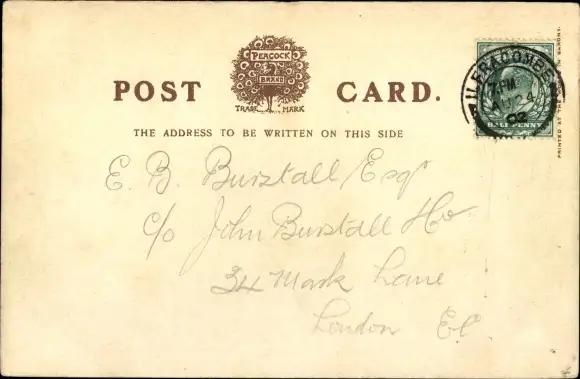 PEACOCK
BRAND
TRADE MARK
POST CARD.
THE ADDRESS TO BE WRITTEN ON THIS SIDE
ILFRACOMBE
7 PM
AU 24
02
HALFPENNY
PRINTED AT THE
E. B. Burstall Esqr
c/o John Burstall Ho
34 Mark Lane
London EC